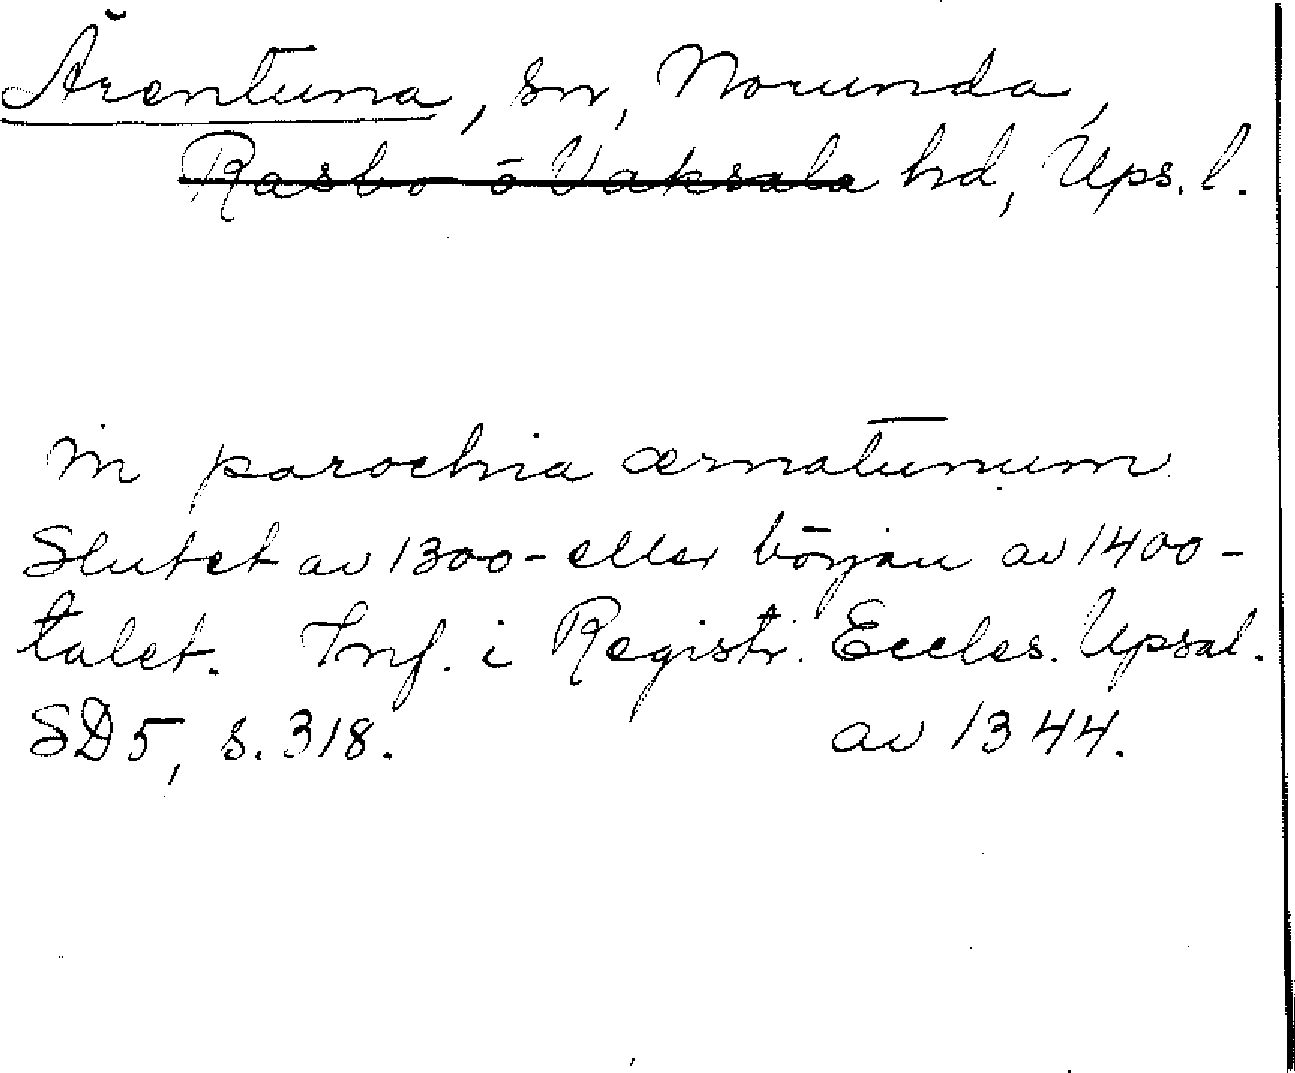 Ärentuna, sn, Norunda,
Rasbo o Vaksala hd, Ups. l.
in parochia œrnatunum
Slutet av 1300- eller början av 1400-
talet. Inf. i Registr. Eccles. Upsal.
SD 5, s. 318. av 1344.